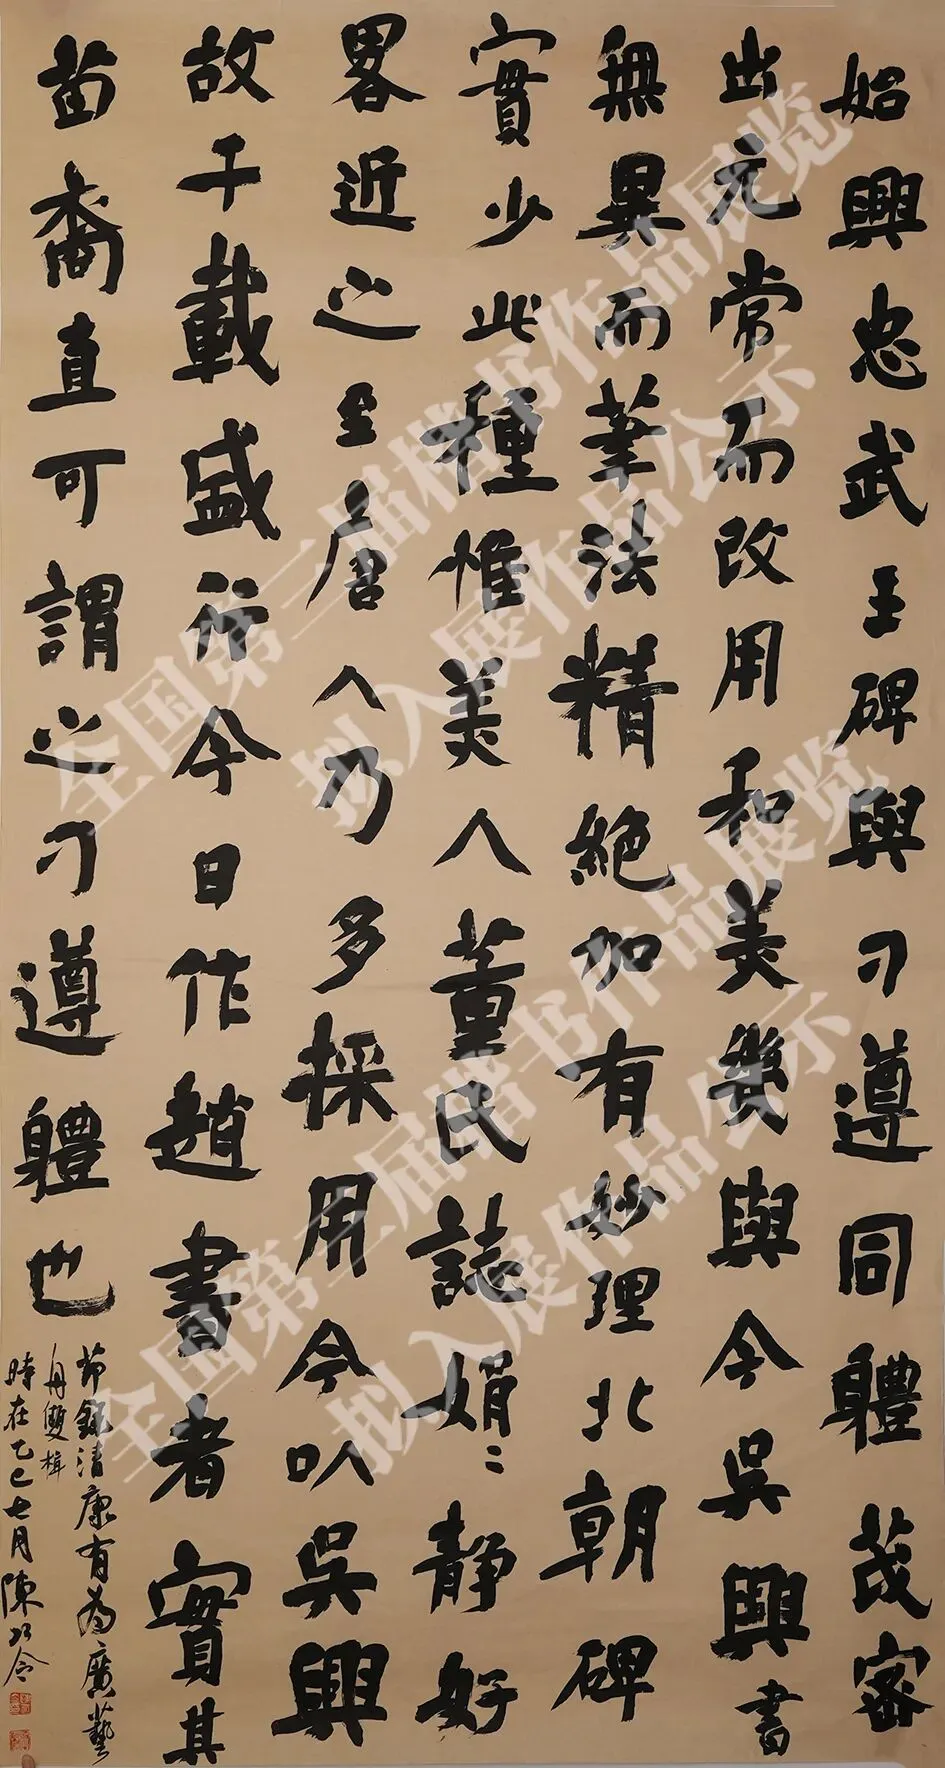 始興忠武王碑與刁遵同體茂密
出元常而改用和美幾與今吳興書
無異而筆法精絕加有妙理北朝碑
實少此種惟美人董氏誌娟〻靜好
畧近之至唐人乃多採用今以吳興
故千載盛行今日作趙書者實其
苗裔直可謂之刁遵體也
節錄清康有為廣藝
舟雙楫
時在乙巳七月陳
全国第三届楷书作品展览
拟入展作品公示
全国第三届楷书作品展览
拟入展作品公示